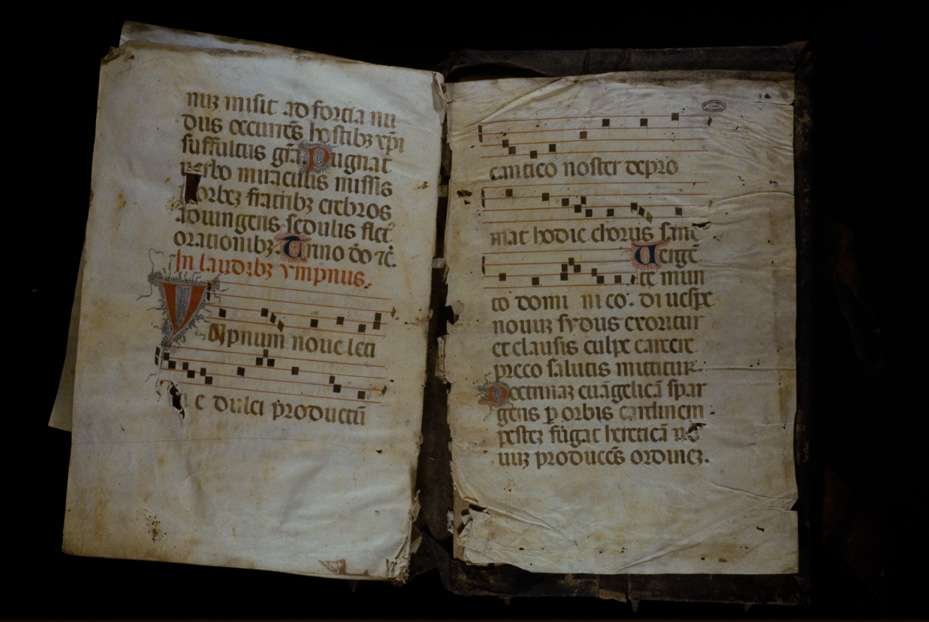 nuz misit ad forcia nu
dus occurrēs hostibz xpi
suffultus gr̄a. Pugnat
verbo miraculis missis
orbez fratribz crebros
adiungens sedulis flet
orationibz. Trino dō ⁊c.
In laudibz ympnus.
Ympnum noue leti
e dulci productū
cantico noster depro
mat hodie chorus sanc
te mun
Uergē
to domi ni co. di uespe
nouuz sydus exoritur
et clausis culpe carcere
preco salutis mittitur.
Doctrinaz euāgelicā spar
gens p orbis cardinem
pestez fugat hereticā no
uuz producēs ordinez.